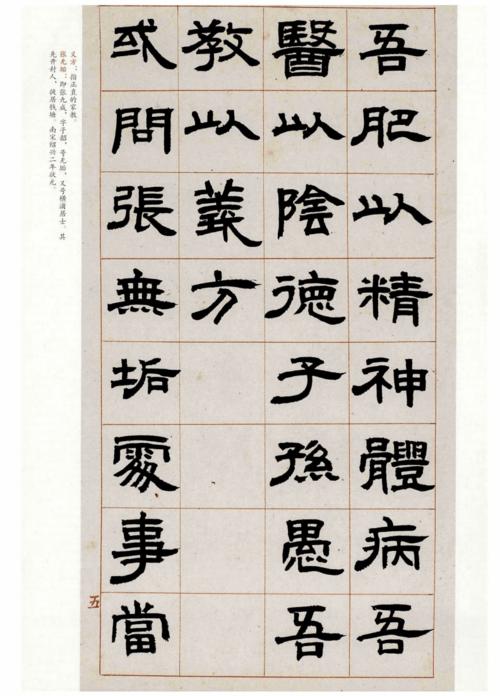 吾肥以精神體病吾
醫以陰德子孫愚吾
教以義方
或問張無垢處事當
五
义方：指正直的家教。
张无垢：即张九成，字子韶，号无垢，又号横浦居士。其
先开封人，徙居钱塘。南宋绍兴二年状元。